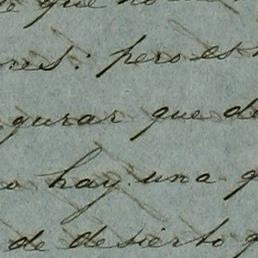 que no
res: pero es
gurar que de
o hay una q
de desierto q